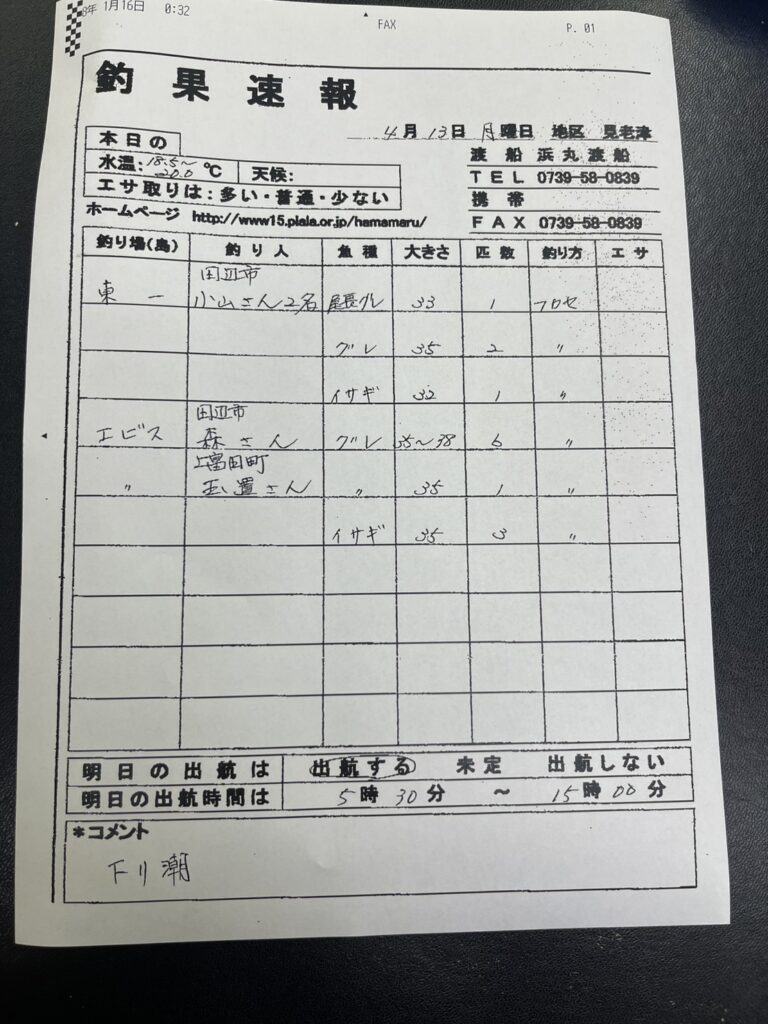 8年 1月16日 0:32 FAX P. 01
釣果速報
4月13日 月曜日 地区 見老津
本日の
水温:18.5~20.0℃ 天候:
エサ取りは:多い・普通・少ない
渡船 浜丸渡船
TEL 0739-58-0839
携帯
FAX 0739-58-0839
ホームページ http://www15.plala.or.jp/hamamaru/
釣り場(島) 釣り人 魚種 大きさ 匹数 釣り方 エサ
田辺市
東一 小山さん2名 尾長グレ 33 1 フカセ
グレ 35 2 〃
イサギ 32 1 〃
田辺市
エビス 森さん グレ 35~38 6 〃
上富田町
〃 玉置さん 〃 35 1 〃
イサギ 35 3 〃
明日の出航は 出航する 未定 出航しない
明日の出航時間は 5時30分 ~ 15時00分
*コメント
下り潮